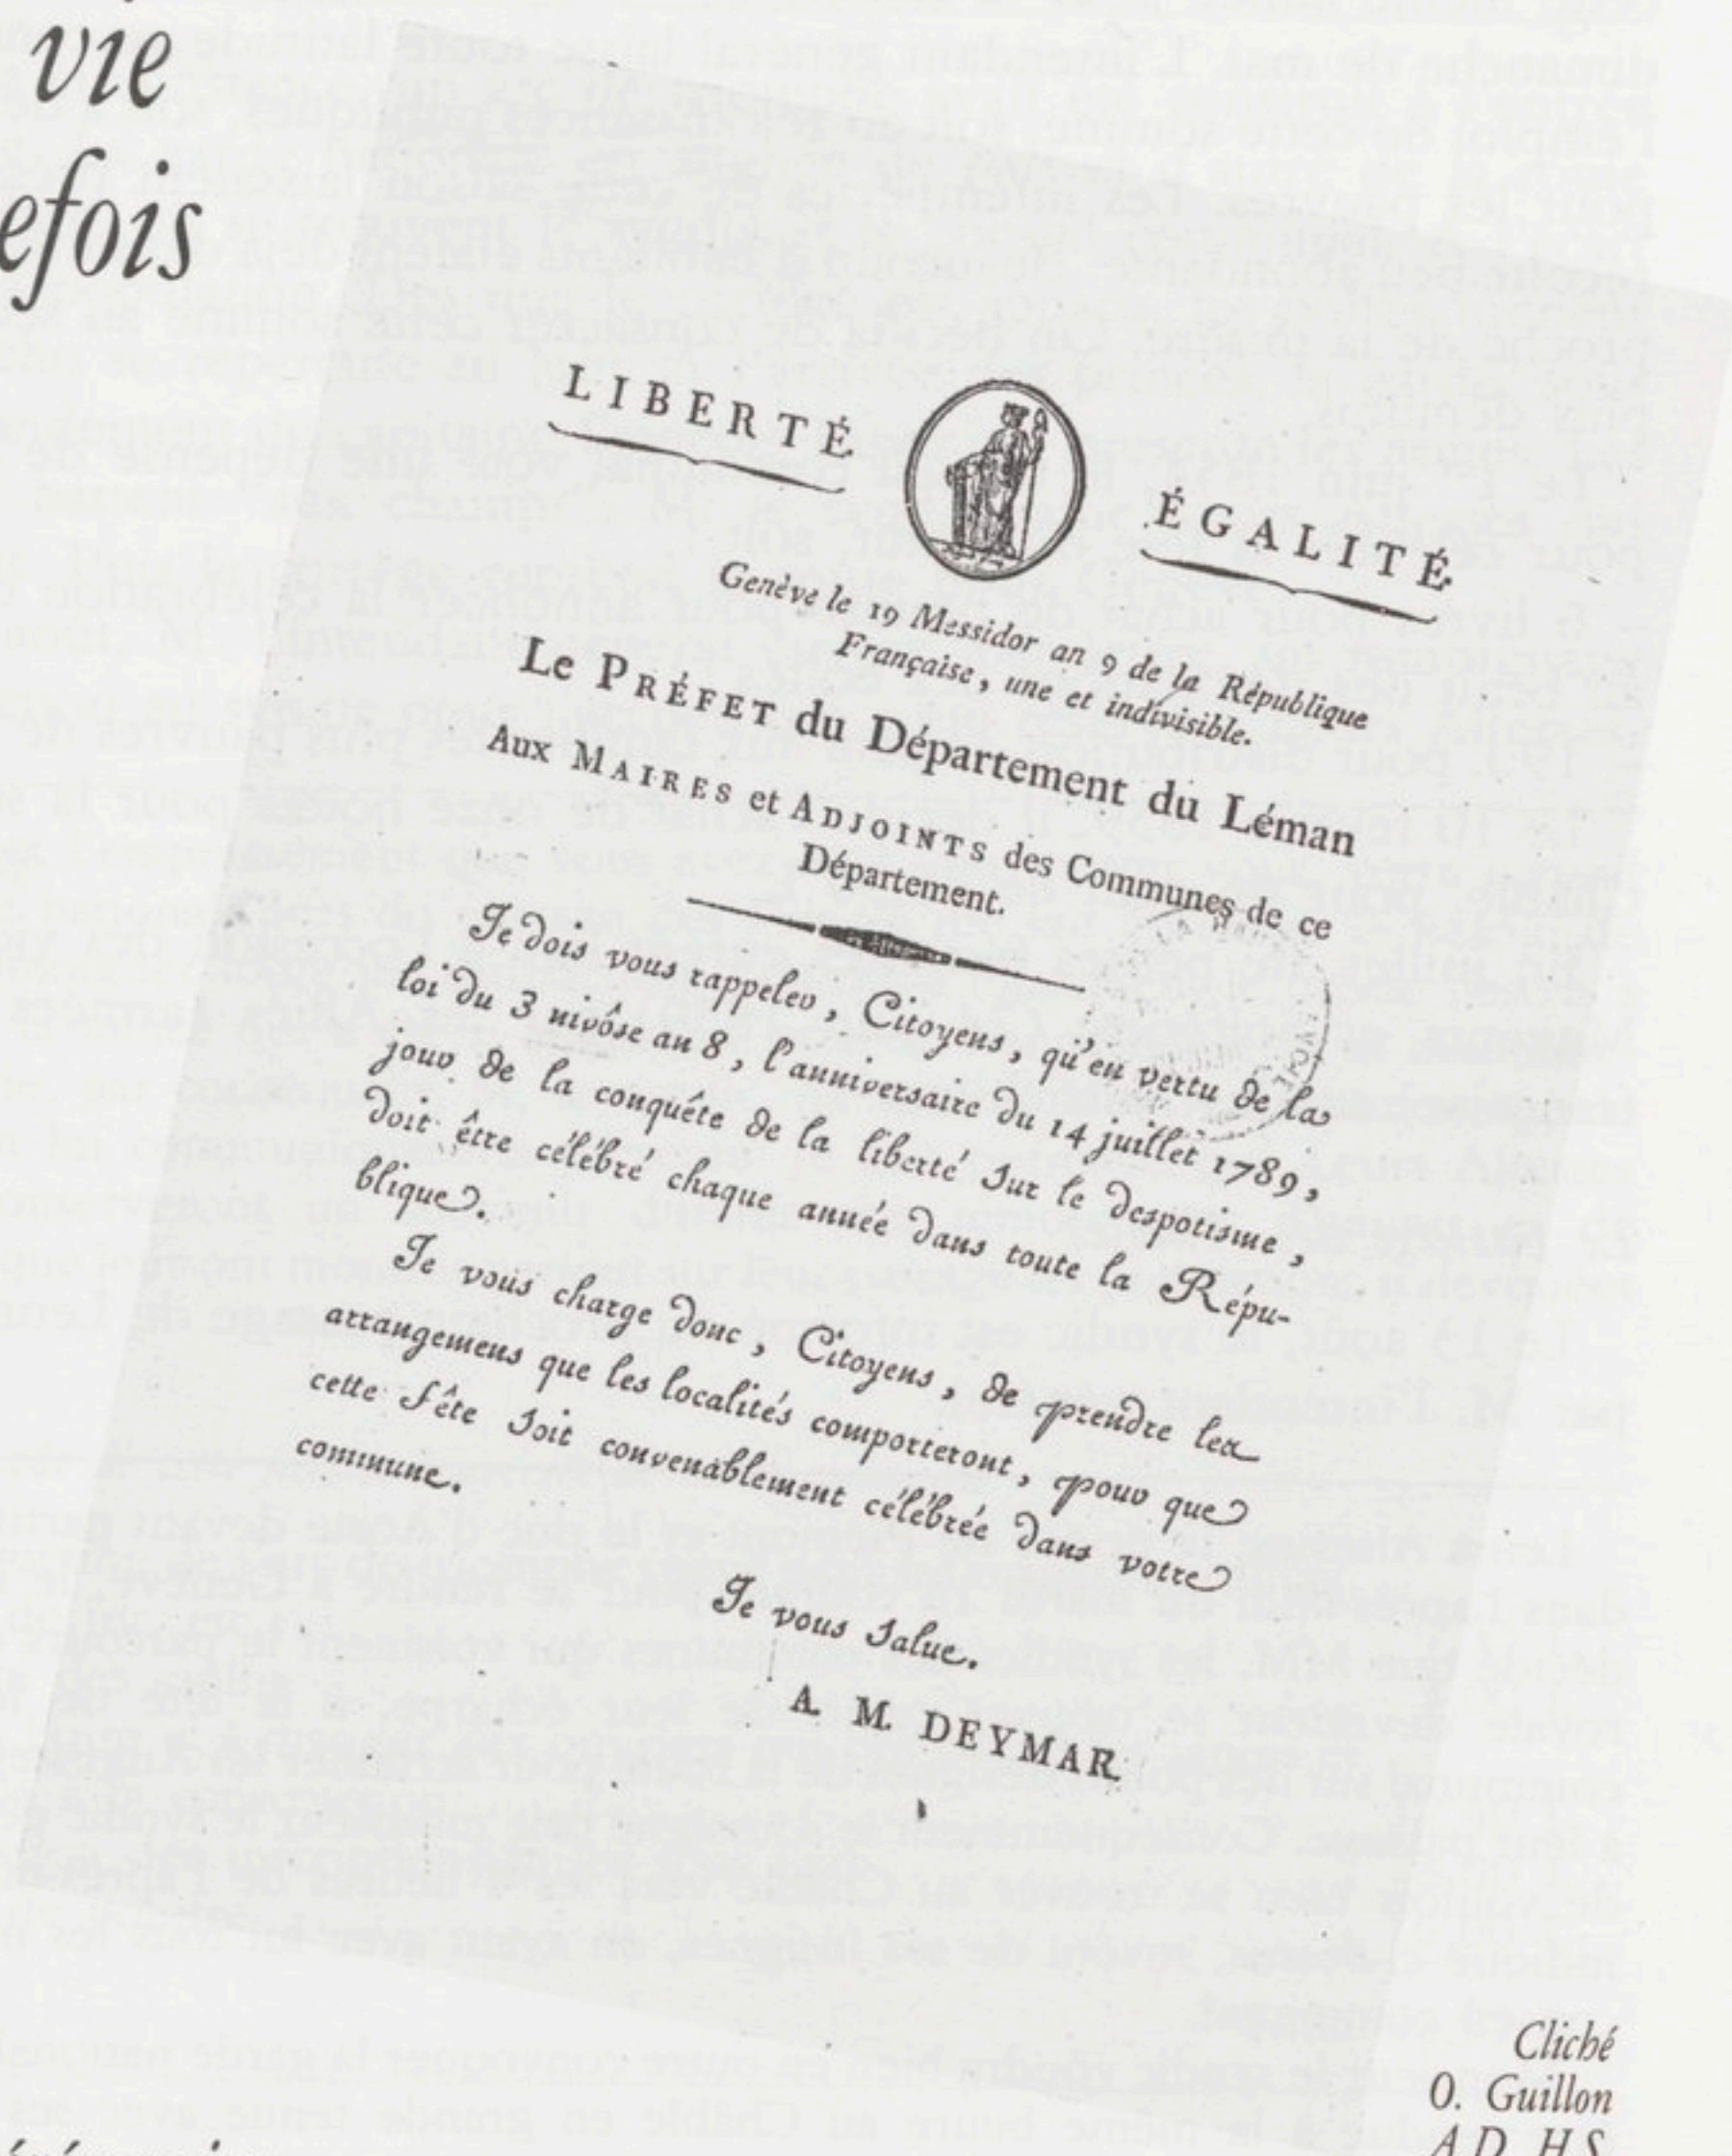 vie
efois
LIBERTÉ
ÉGALITÉ
Genève le 19 Messidor an 9 de la République
Française, une et indivisible.
Le PRÉFET du Département du Léman
Aux MAIRES et ADJOINTS des Communes de ce
Département.
Je dois vous rappeler, Citoyens, qu'en vertu de la
loi du 3 nivôse an 8, l'anniversaire du 14 juillet 1789,
jour de la conquête de la liberté sur le despotisme,
doit être célébré chaque année dans toute la Répu-
blique.
Je vous charge donc, Citoyens, de prendre les
arrangemens que les localités comporteront, pour que
cette fête soit convenablement célébrée dans votre
commune.
Je vous salue.
A. M. DEYMAR
Cliché
O. Guillon
A.D. H.S.